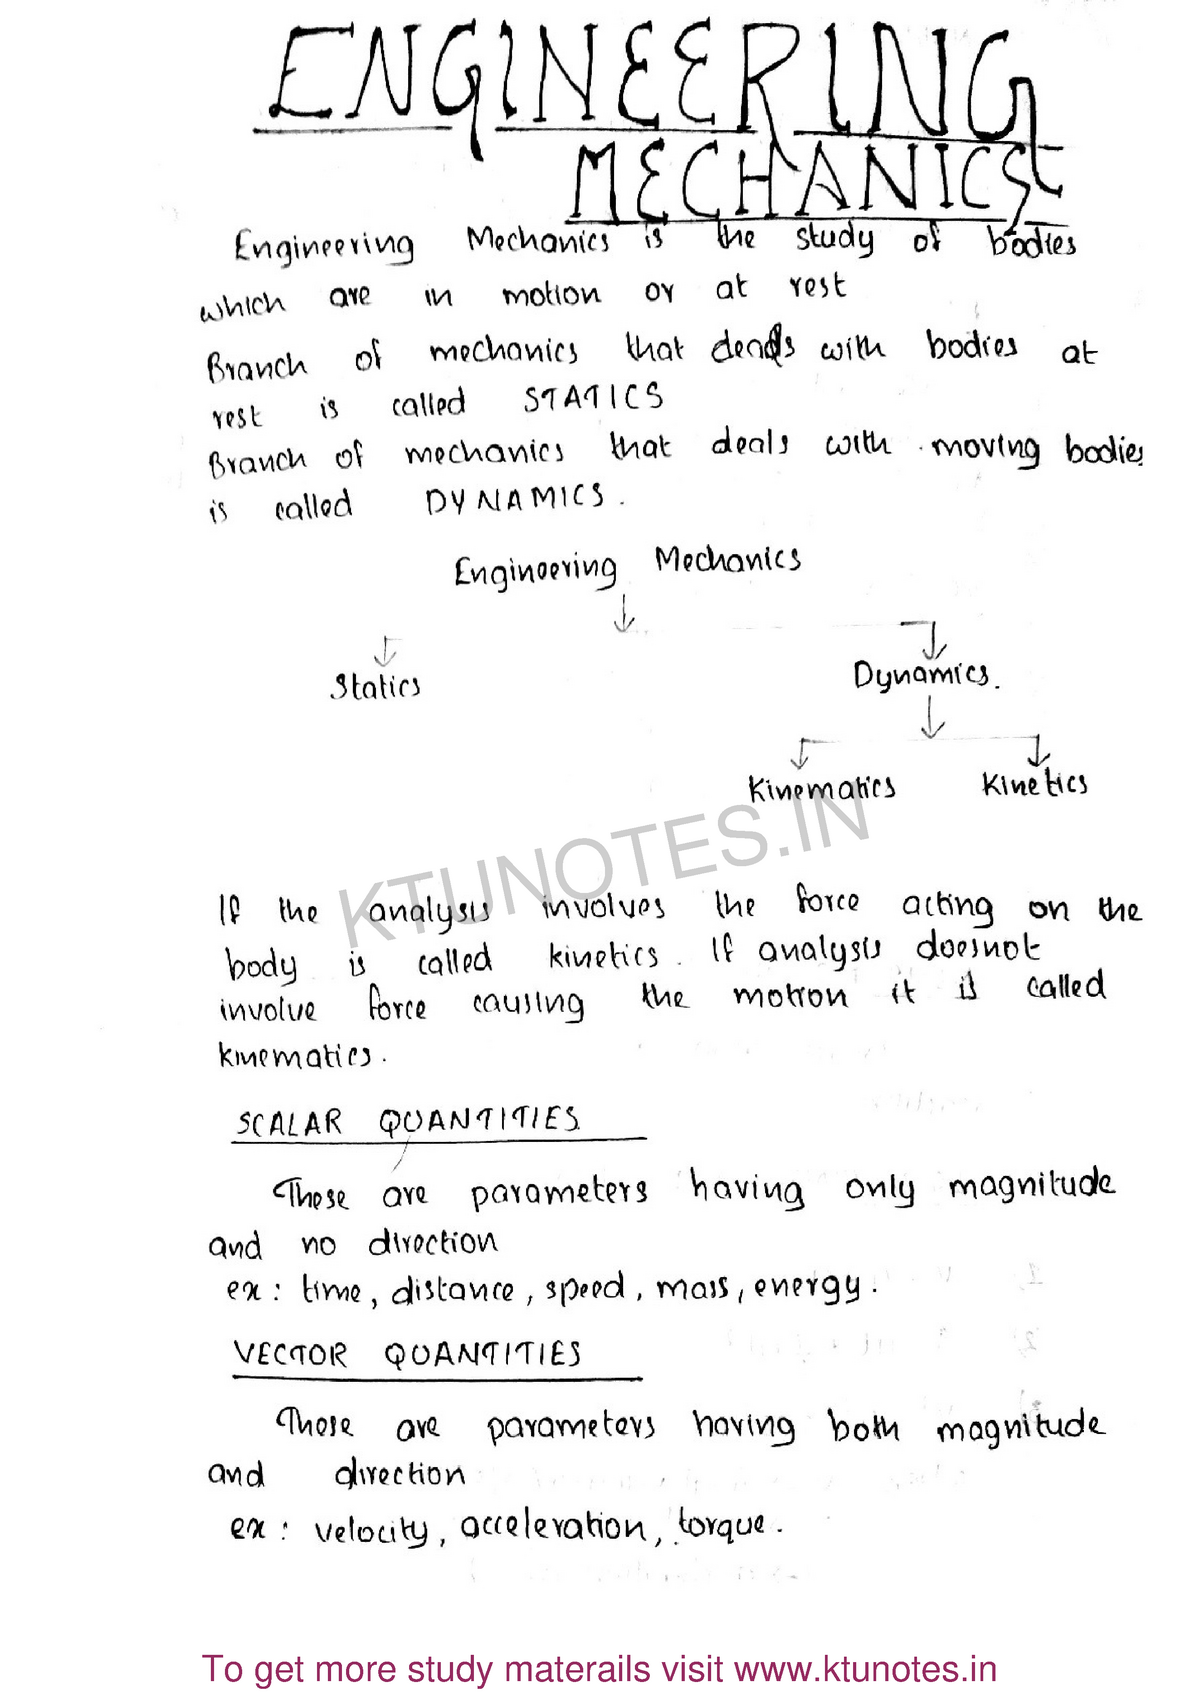 ENGINEERING
MECHANICS
Engineering Mechanics is the study of bodies
which are in motion or at rest
Branch of mechanics that deals with bodies at
rest is called STATICS
Branch of mechanics that deals with moving bodies
is called DYNAMICS.
Engineering Mechanics
Statics
Dynamics.
Kinematics
Kinetics
KTUNOTES.IN
If the analysis involves the force acting on the
body is called kinetics. If analysis doesnot
involve force causing the motion it is called
kinematics.
SCALAR QUANTITIES
These are parameters having only magnitude
and no direction
ex: time, distance, speed, mass, energy.
VECTOR QUANTITIES
These are parameters having both magnitude
and direction
ex: velocity, acceleration, torque.
To get more study materails visit www.ktunotes.in